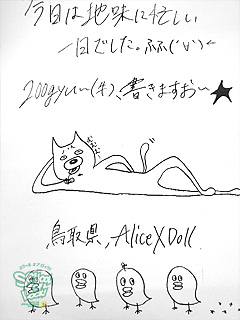 今日は地味に忙しい
一日でした。ふふ('∀')
200gyu〜(牛)、書きますお〜★
鳥取県, AliceXDoll